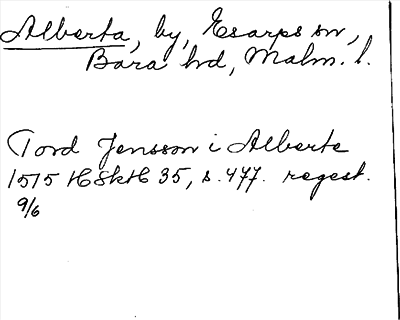 Alberta, by, Esarps sn,
Bara hd, Malm. l.
Tord Jensson i Alberte
1515 HSkH 35, s. 477. regest.
9/6